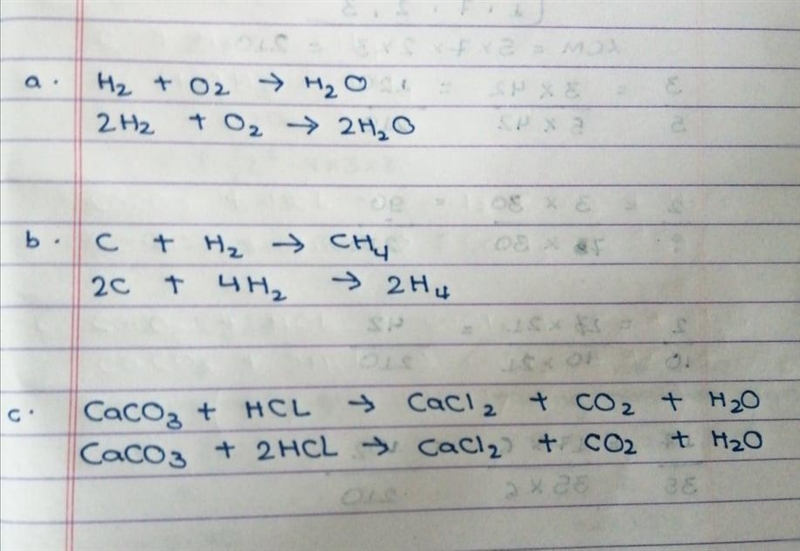 a. H₂ + O₂ → H₂O
2H₂ + O₂ → 2H₂O
b. C + H₂ → CH₄
2C + 4H₂ → 2H₄
c. CaCO₃ + HCL → CaCl₂ + CO₂ + H₂O
CaCO₃ + 2HCL → CaCl₂ + CO₂ + H₂O